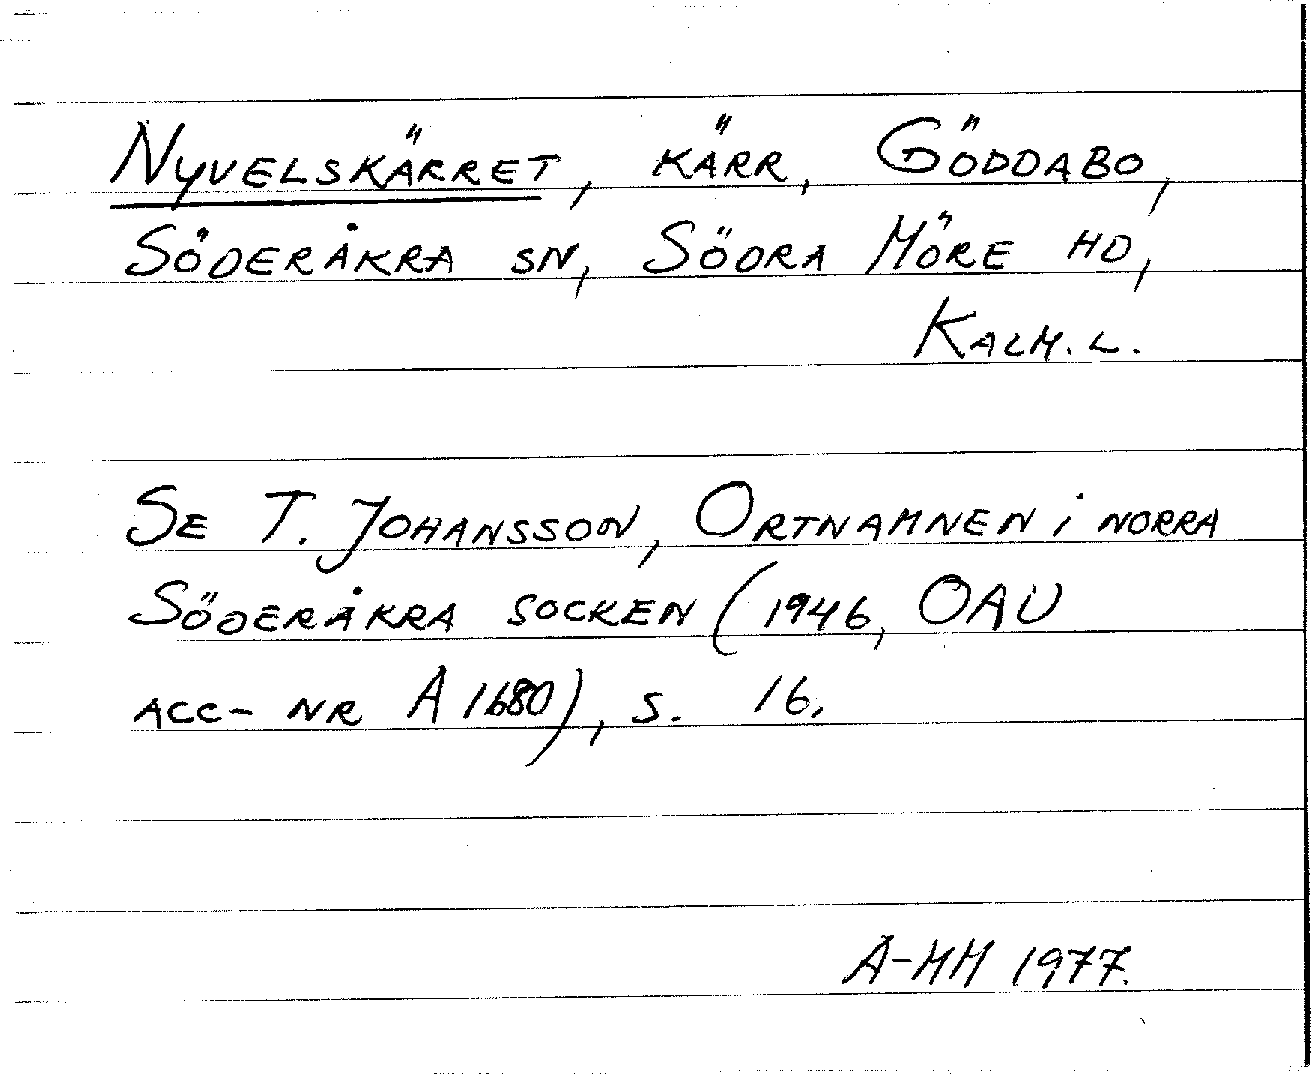 Nyvelskärret, kärr, Göddabo,
Söderåkra sn, Södra Möre hd,
Kalm. l.
Se T. Johansson, Ortnamnen i norra
Söderåkra socken (1946, OAU
acc-nr A 1680), s. 16.
A-MM 1977.